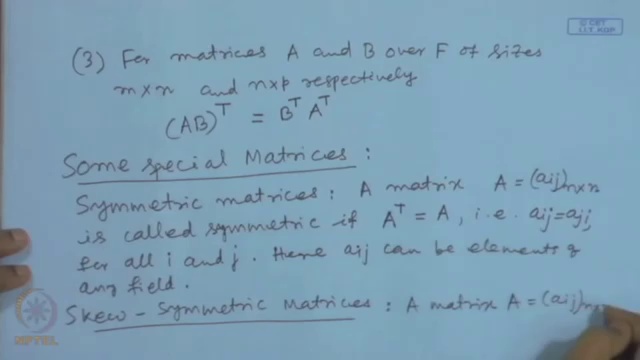 © CET
I.I.T. KGP
(3) For matrices A and B over F of sizes
m×n and n×p respectively
(AB)^T = B^T A^T
Some special Matrices :
Symmetric matrices : A matrix A = (aij)n×n
is called symmetric if A^T = A, i.e. aij = aji,
for all i and j. Here aij can be elements of
any field.
Skew-Symmetric Matrices : A matrix A = (aij)n×
NPTEL